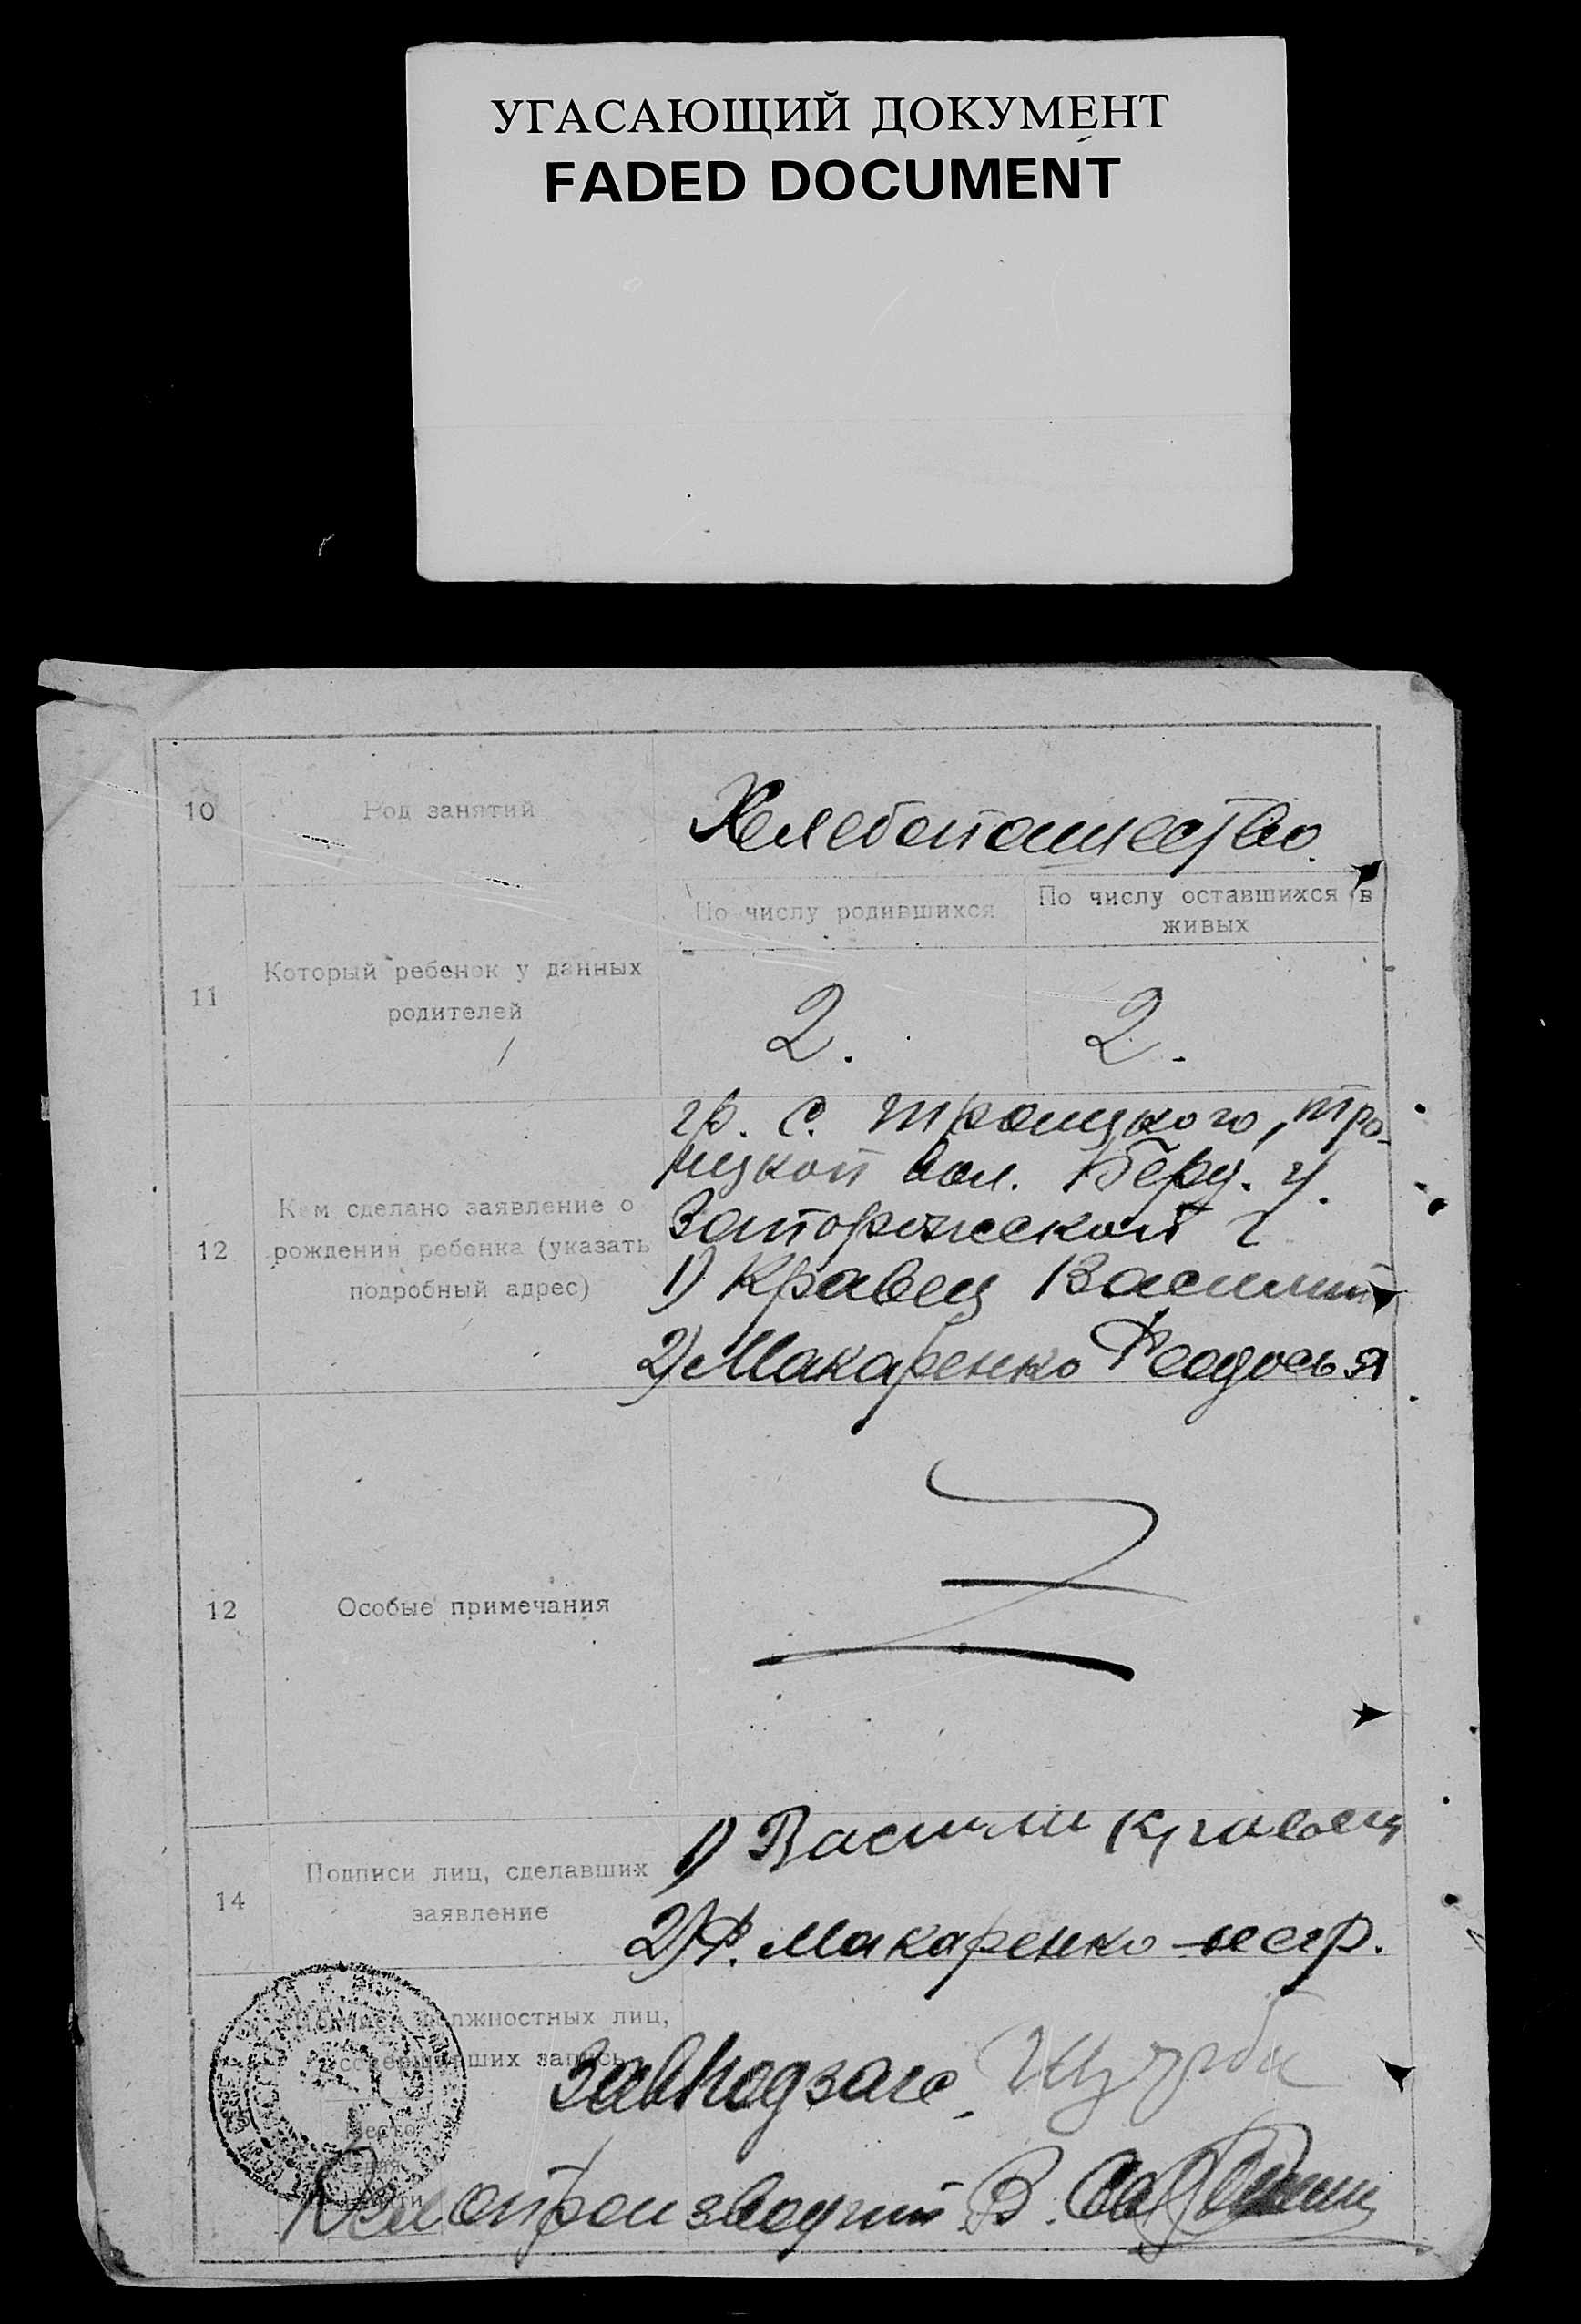 УГАСАЮЩИЙ ДОКУМЕНТ
FADED DOCUMENT
10
Род занятий
Хлебопашество.
11
Который ребенок у данных
родителей
По числу родившихся
По числу оставшихся в
живых
2.
2.
12
Кем сделано заявление о
рождении ребенка (указать
подробный адрес)
гр. с. Троицкого, Тро-
ицкой вол. Берд. у.
Запорожской г
1) Кравец Василий
2) Макаренко Феодосья
12
Особые примечания
14
Подписи лиц, сделавших
заявление
1) Васили Кравец
2) Ф. Макаренко негр.
Подписи должностных лиц,
совершивших запись
Завподзагс.
Место
печати
Делопроизводит. В.